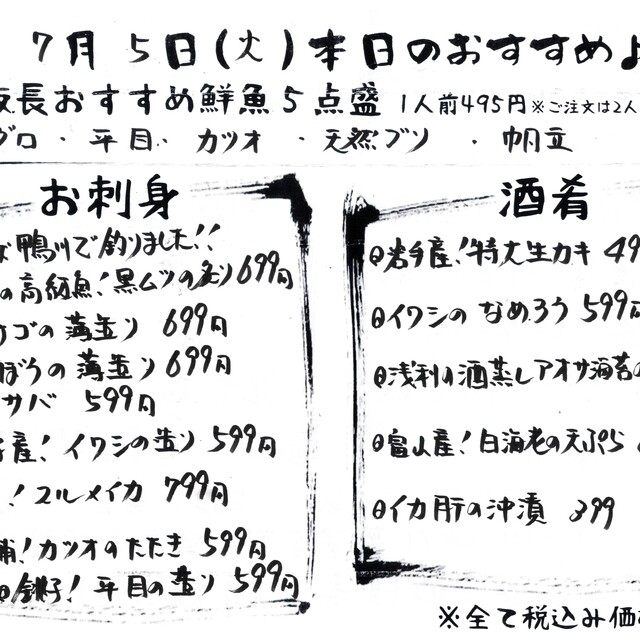 7月5日(火)本日のおすすめ
長おすすめ鮮魚5点盛 1人前495円 ※ご注文は2人
グロ・平目・カツオ・天然ブリ・帆立
お刺身
鴨川で釣りました!!
の高級魚!黒ムツの造り 699円
ゴの薄造り 699円
ぼうの薄造り 699円
サバ 599円
産!イワシの造り 599円
!スルメイカ 799円
浦!カツオのたたき 599円
銚子!平目の造り 599円
酒肴
岩手産!特大生カキ 49
イワシのなめろう 599円
浅利の酒蒸しアオサ海苔の
富山産!白海老の天ぷら
イカ肝の沖漬 399
※全て税込み価